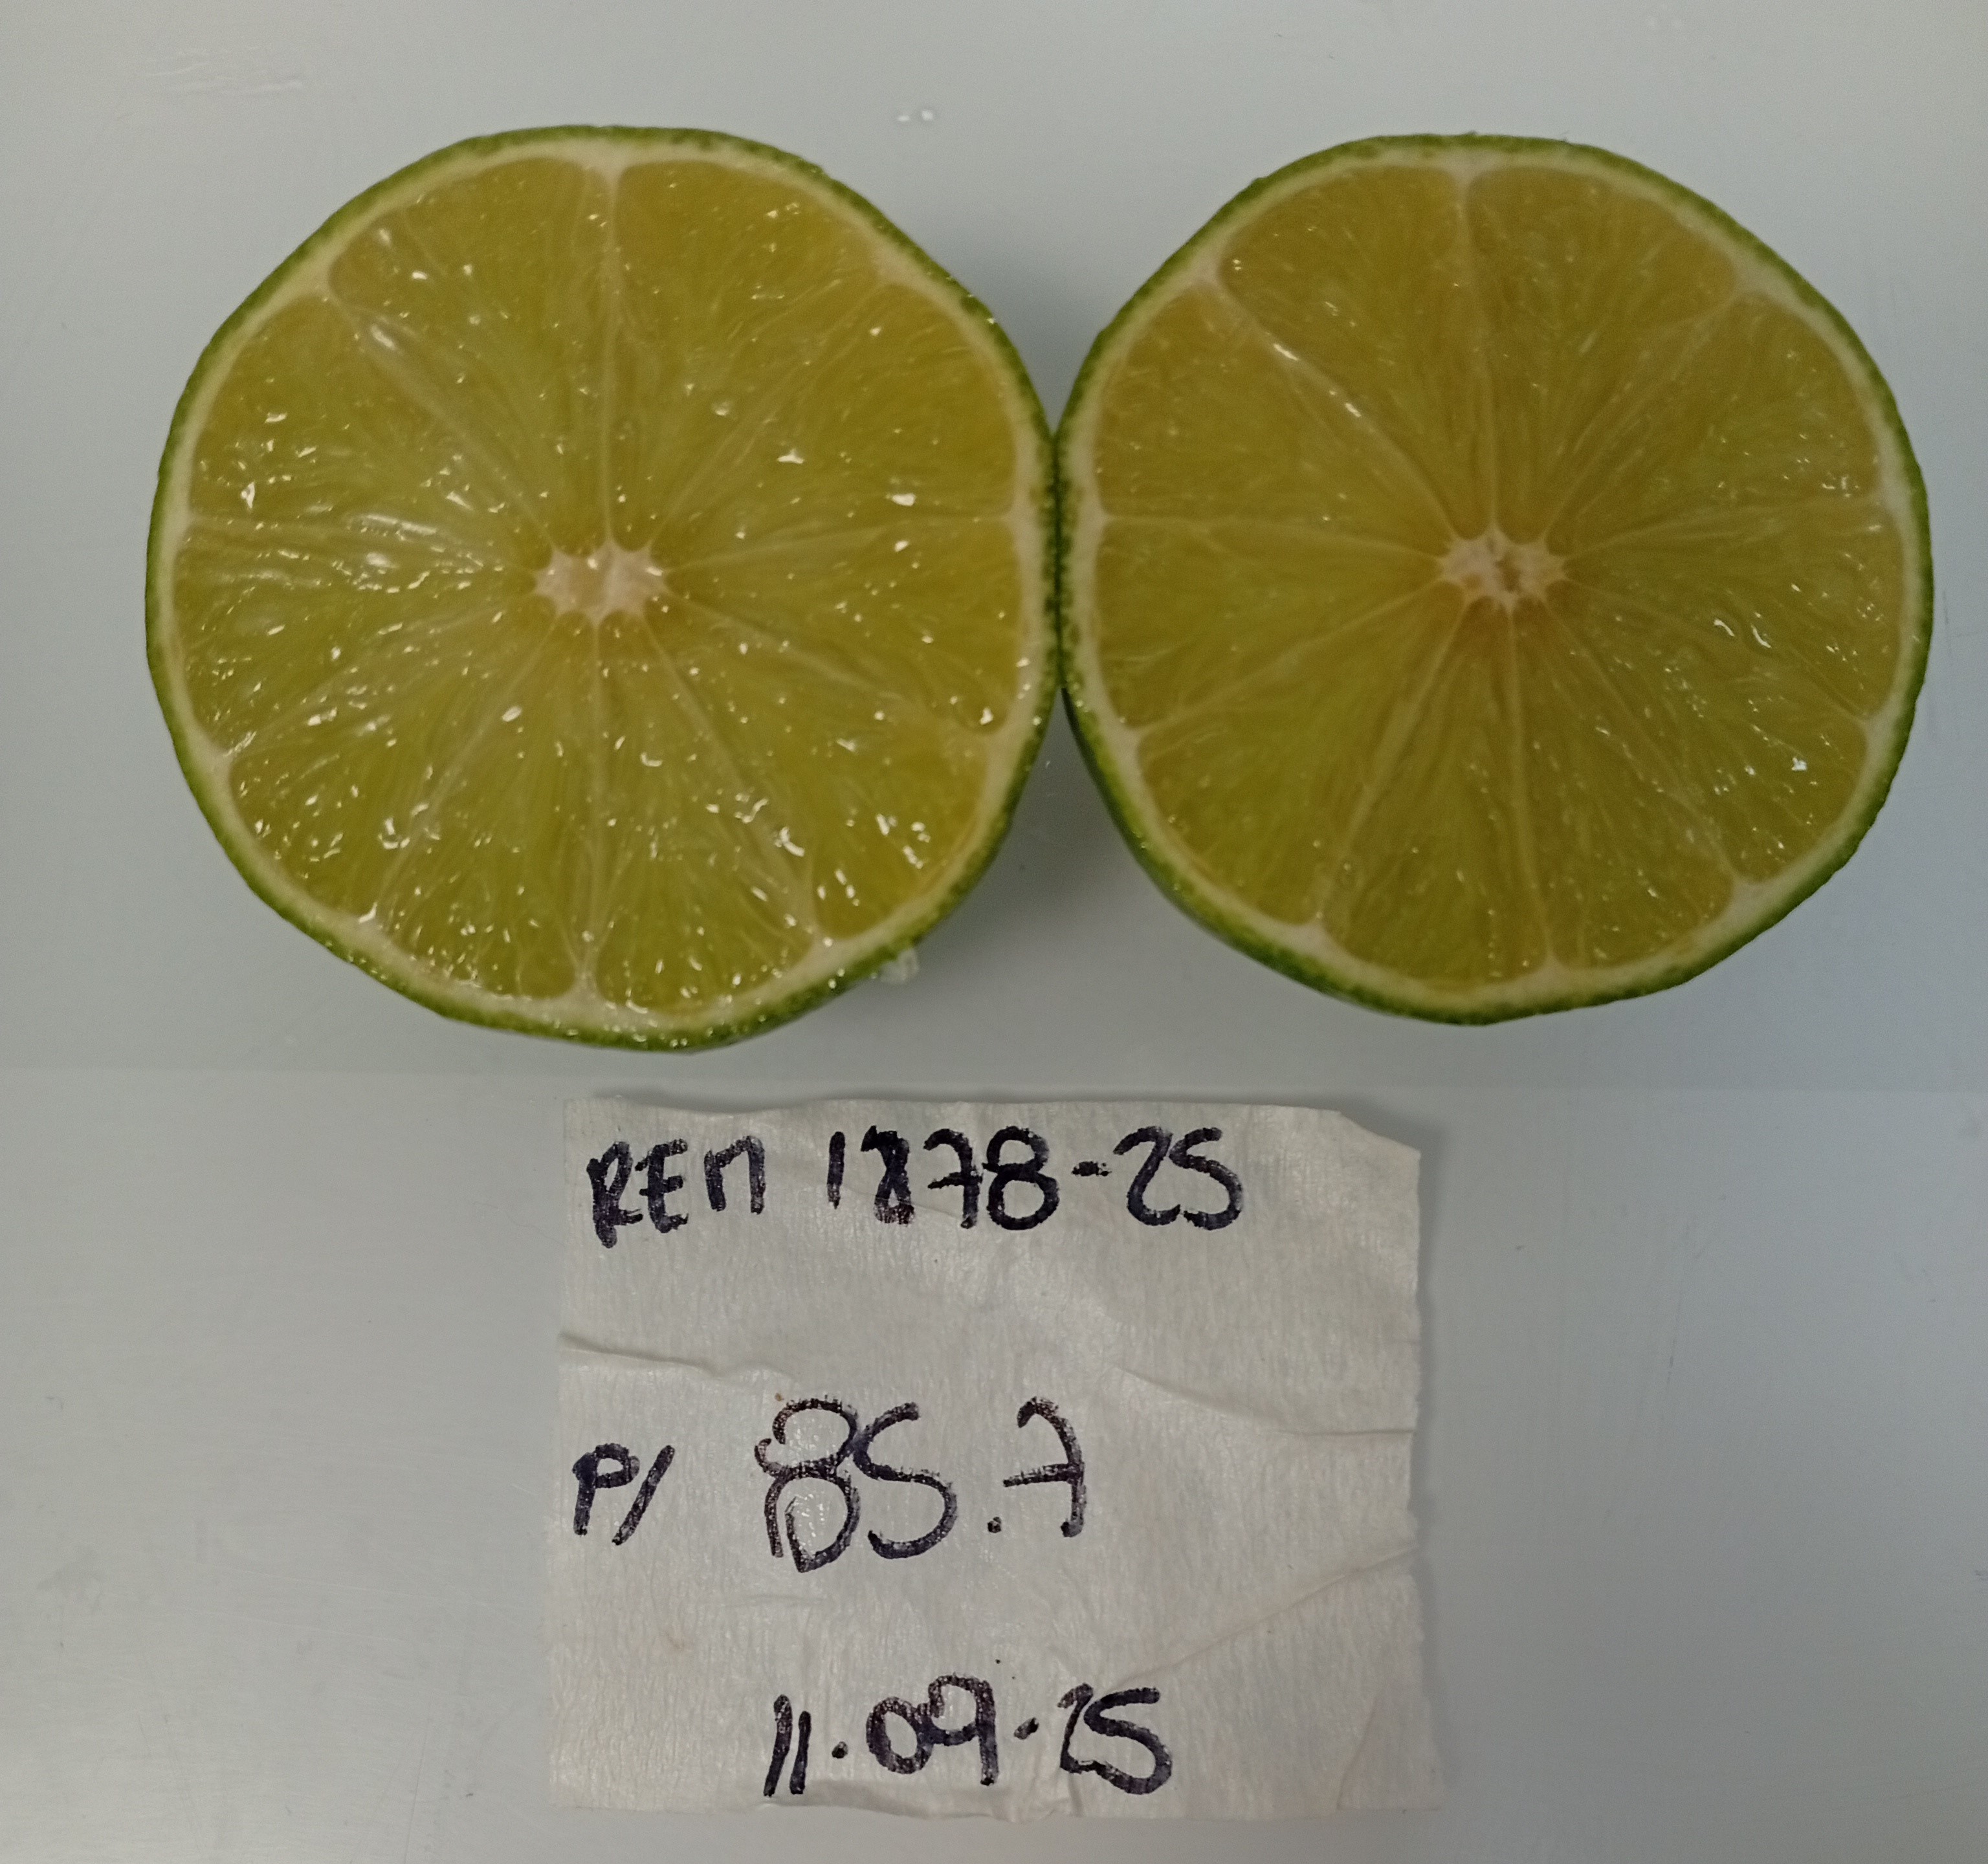 REM 1878-25
P/ 85.7
11.09-25